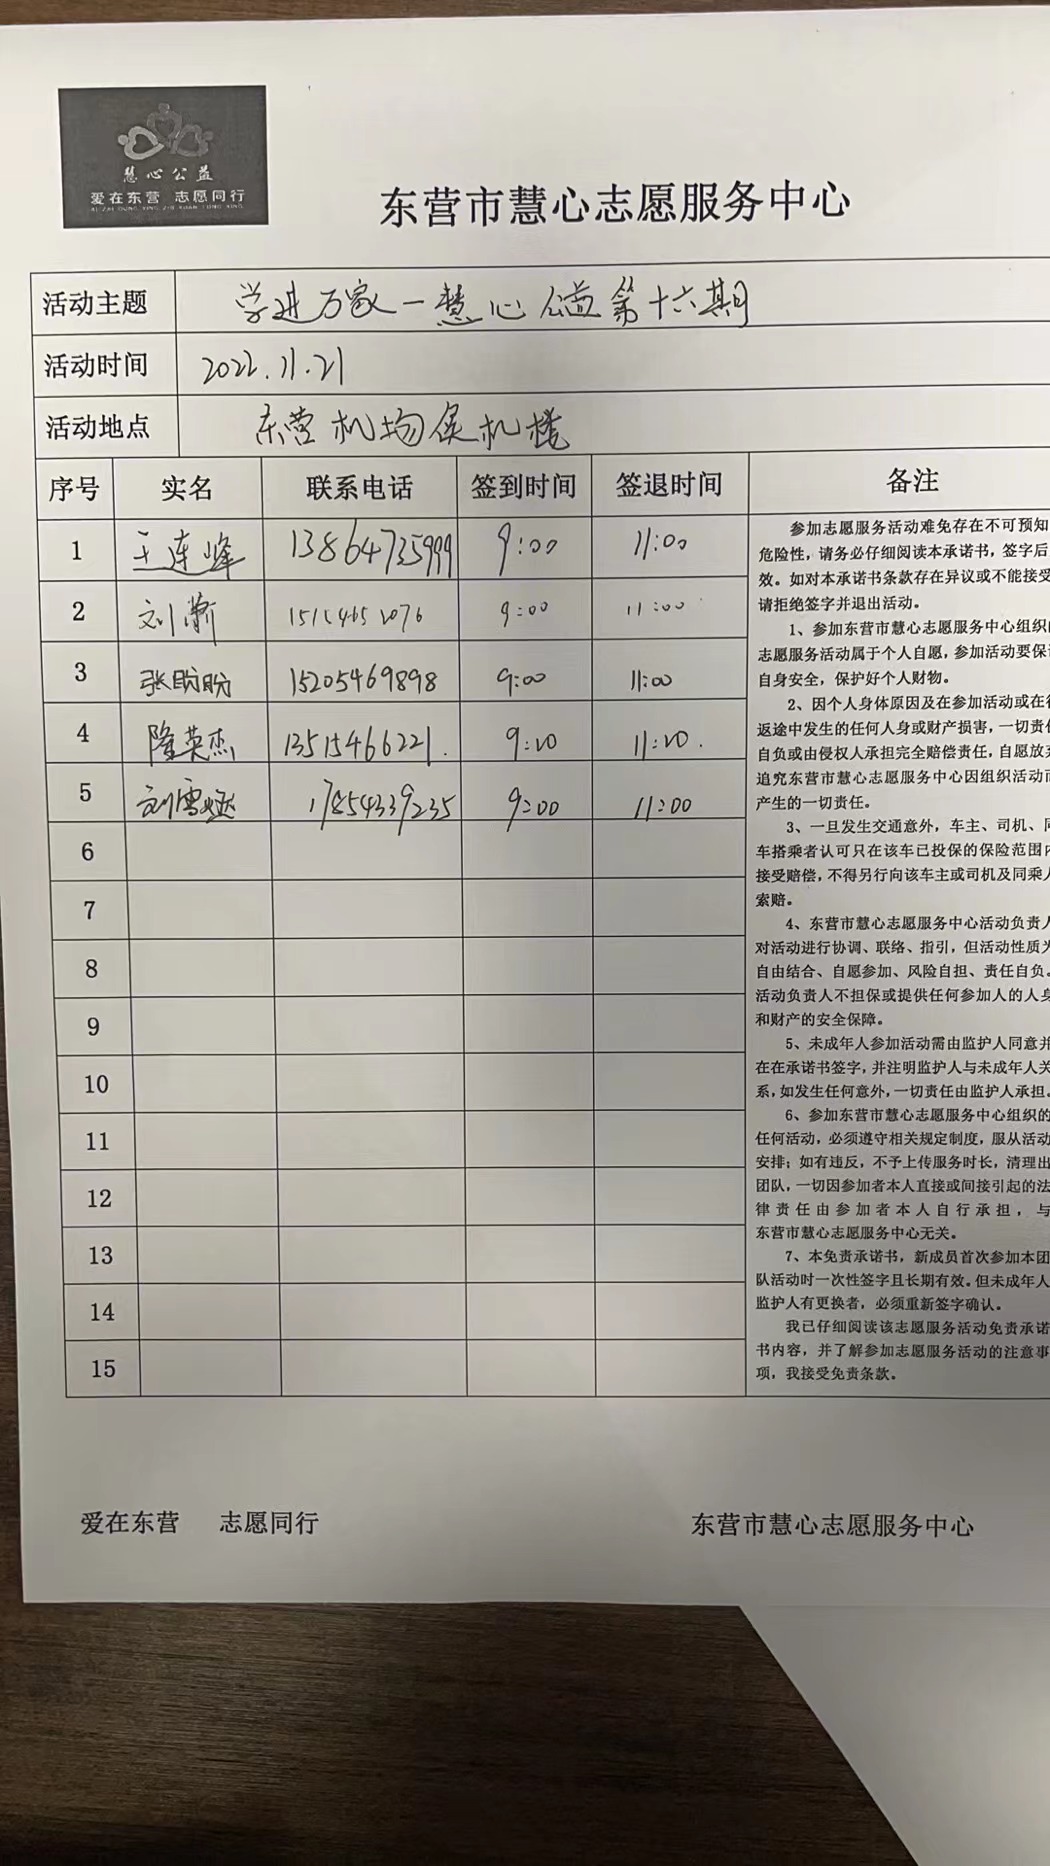 慧心公益
爱在东营 志愿同行
东营市慧心志愿服务中心
活动主题 学进万家一慧心公益第十六期
活动时间 2022.11.21
活动地点 东营机场候机楼
序号 实名 联系电话 签到时间 签退时间 备注
1 王连峰 13864735999 9:00 11:00
2 刘 9:00 11:00
3 张盼盼 15205469898 9:00 11:00
4 隆英杰 13515466221. 9:20 11:20.
5 刘雪燃 17854339235 9:00 11:00
6
7
8
9
10
11
12
13
14
15
参加志愿服务活动难免存在不可预知
危险性，请务必仔细阅读本承诺书，签字后
效。如对本承诺书条款存在异议或不能接受
请拒绝签字并退出活动。
1、参加东营市慧心志愿服务中心组织
志愿服务活动属于个人自愿，参加活动要保
自身安全，保护好个人财物。
2、因个人身体原因及在参加活动或在
返途中发生的任何人身或财产损害，一切责
自负或由侵权人承担完全赔偿责任，自愿放
追究东营市慧心志愿服务中心因组织活动
产生的一切责任。
3、一旦发生交通意外，车主、司机、同
车搭乘者认可只在该车已投保的保险范围内
接受赔偿，不得另行向该车主或司机及同乘人
索赔。
4、东营市慧心志愿服务中心活动负责人
对活动进行协调、联络、指引，但活动性质为
自由结合、自愿参加、风险自担、责任自负。
活动负责人不担保或提供任何参加人的人身
和财产的安全保障。
5、未成年人参加活动需由监护人同意并
在在承诺书签字，并注明监护人与未成年人关
系，如发生任何意外，一切责任由监护人承担。
6、参加东营市慧心志愿服务中心组织的
任何活动，必须遵守相关规定制度，服从活动
安排；如有违反，不予上传服务时长，清理出
团队，一切因参加者本人直接或间接引起的法
律责任由参加者本人自行承担，与
东营市慧心志愿服务中心无关。
7、本免责承诺书，新成员首次参加本团
队活动时一次性签字且长期有效。但未成年人
监护人有更换者，必须重新签字确认。
我已仔细阅读该志愿服务活动免责承诺
书内容，并了解参加志愿服务活动的注意事
项，我接受免责条款。
爱在东营 志愿同行 东营市慧心志愿服务中心